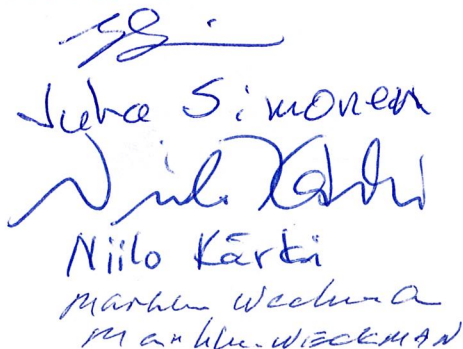 Juha Simonen
Niilo Kärki
Niilo Kärki
Markku Weckman
Markku WECKMAN